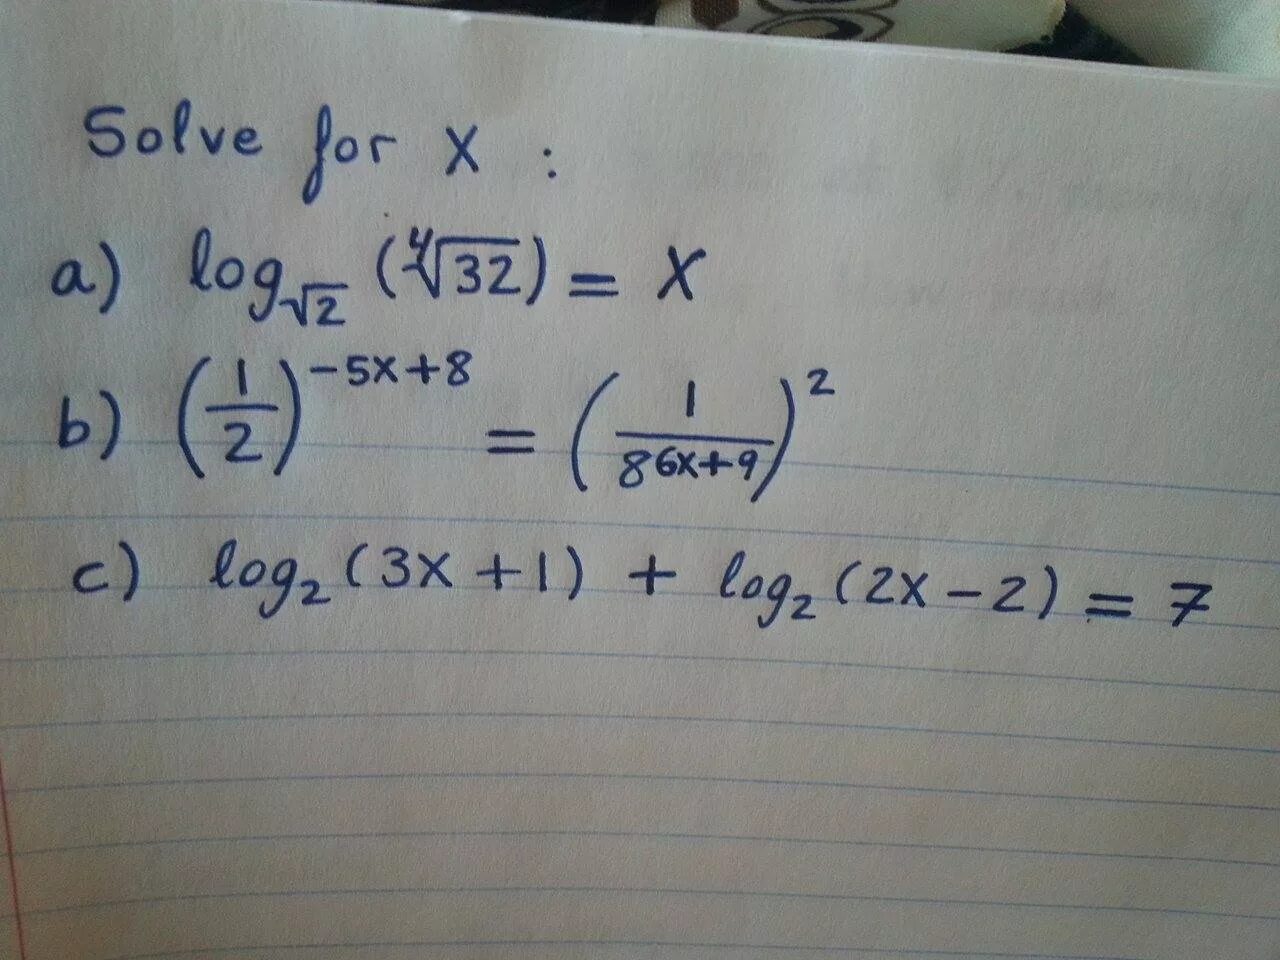 Solve for x :
a) log_√2 (∜32) = x
b) (1/2)^(-5x+8) = (1/8^(6x+9))^2
c) log₂(3x+1) + log₂(2x-2) = 7